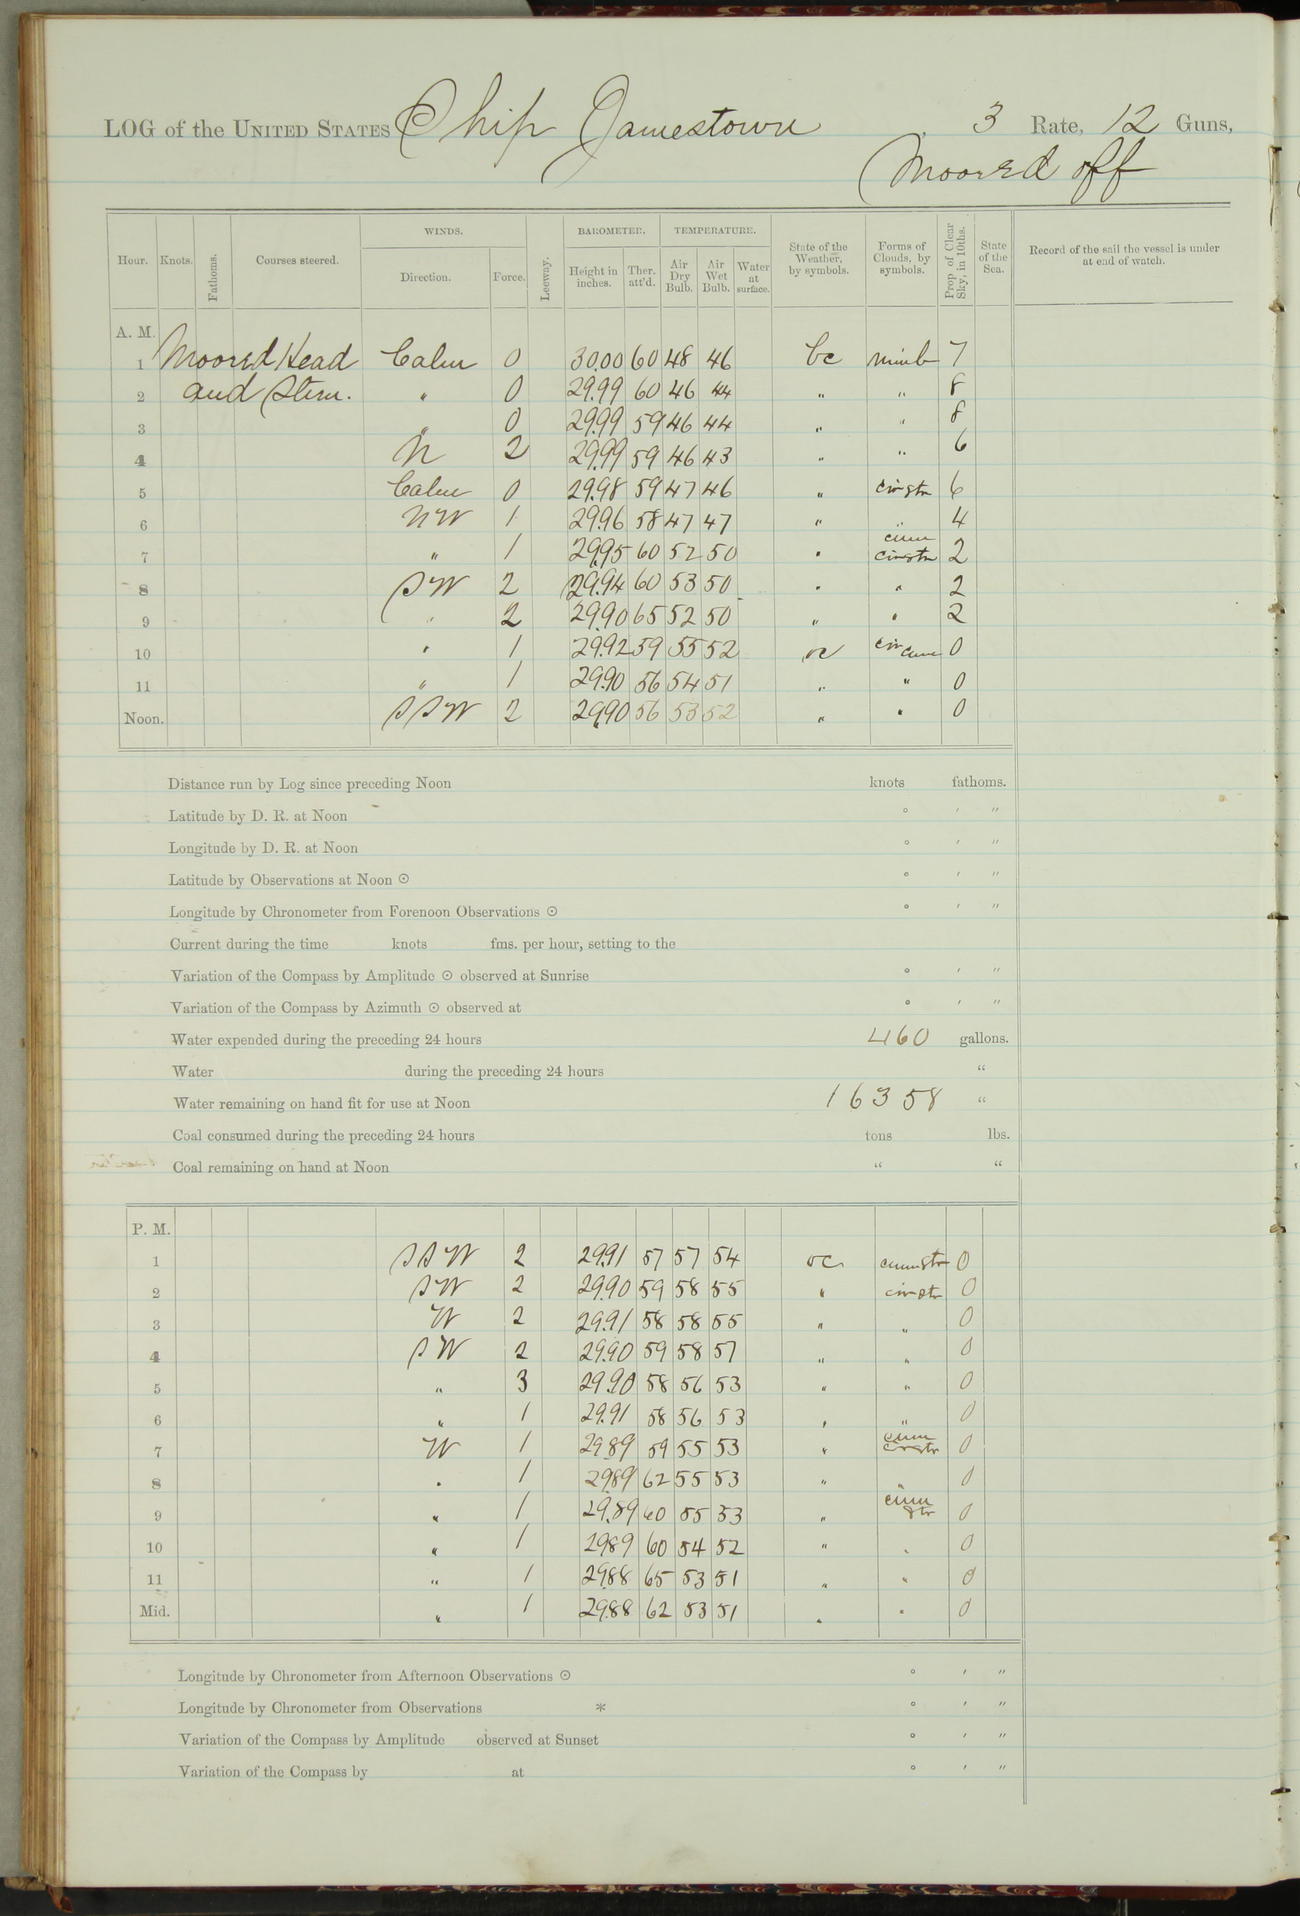 LOG of the UNITED STATES Ship Jamestown, 3 Rate, 12 Guns,
Moored off
Hour. Knots. Fathoms. Courses steered. WINDS. Direction. Force. Leeway. BAROMETER. Height in inches. Ther. att'd. TEMPERATURE. Air Dry Bulb. Air Wet Bulb. Water at surface. State of the Weather, by symbols. Forms of Clouds, by symbols. Prop of Clear Sky, in 10ths. State of the Sea. Record of the sail the vessel is under at end of watch.
A. M.
1 Moored Head Calm 0 30.00 60 48 46 bc nimb 7
2 and Stern. " 0 29.99 60 46 44 " " 8
3 " 0 29.99 59 46 44 " " 8
4 N 2 29.99 59 46 43 " " 6
5 Calm 0 29.98 59 47 46 " cir str 6
6 NW 1 29.96 58 47 47 " " 4
7 " 1 29.95 60 52 50 " cum cir str 2
8 SW 2 29.94 60 53 50 " " 2
9 " 2 29.90 65 52 50 " " 2
10 " 1 29.92 59 55 52 oc cir cum 0
11 " 1 29.90 56 54 51 " " 0
Noon. SSW 2 29.90 56 53 52 " " 0
Distance run by Log since preceding Noon knots fathoms.
Latitude by D. R. at Noon ° ′ ″
Longitude by D. R. at Noon ° ′ ″
Latitude by Observations at Noon ☉ ° ′ ″
Longitude by Chronometer from Forenoon Observations ☉ ° ′ ″
Current during the time knots fms. per hour, setting to the
Variation of the Compass by Amplitude ☉ observed at Sunrise ° ′ ″
Variation of the Compass by Azimuth ☉ observed at ° ′ ″
Water expended during the preceding 24 hours 460 gallons.
Water during the preceding 24 hours "
Water remaining on hand fit for use at Noon 16358 "
Coal consumed during the preceding 24 hours tons lbs.
Coal remaining on hand at Noon " "
P. M.
1 SSW 2 29.91 57 57 54 oc cum str 0
2 SW 2 29.90 59 58 55 " cir str 0
3 W 2 29.91 58 58 55 " " 0
4 SW 2 29.90 59 58 57 " " 0
5 " 3 29.90 58 56 53 " " 0
6 " 1 29.91 58 56 53 " " 0
7 W 1 29.89 59 55 53 " cum cir str 0
8 " 1 29.89 62 55 53 " " 0
9 " 1 29.89 60 55 53 " cum str 0
10 " 1 29.89 60 54 52 " " 0
11 " 1 29.88 65 53 51 " " 0
Mid. " 1 29.88 62 53 51 " " 0
Longitude by Chronometer from Afternoon Observations ☉ ° ′ ″
Longitude by Chronometer from Observations * ° ′ ″
Variation of the Compass by Amplitude observed at Sunset ° ′ ″
Variation of the Compass by at ° ′ ″